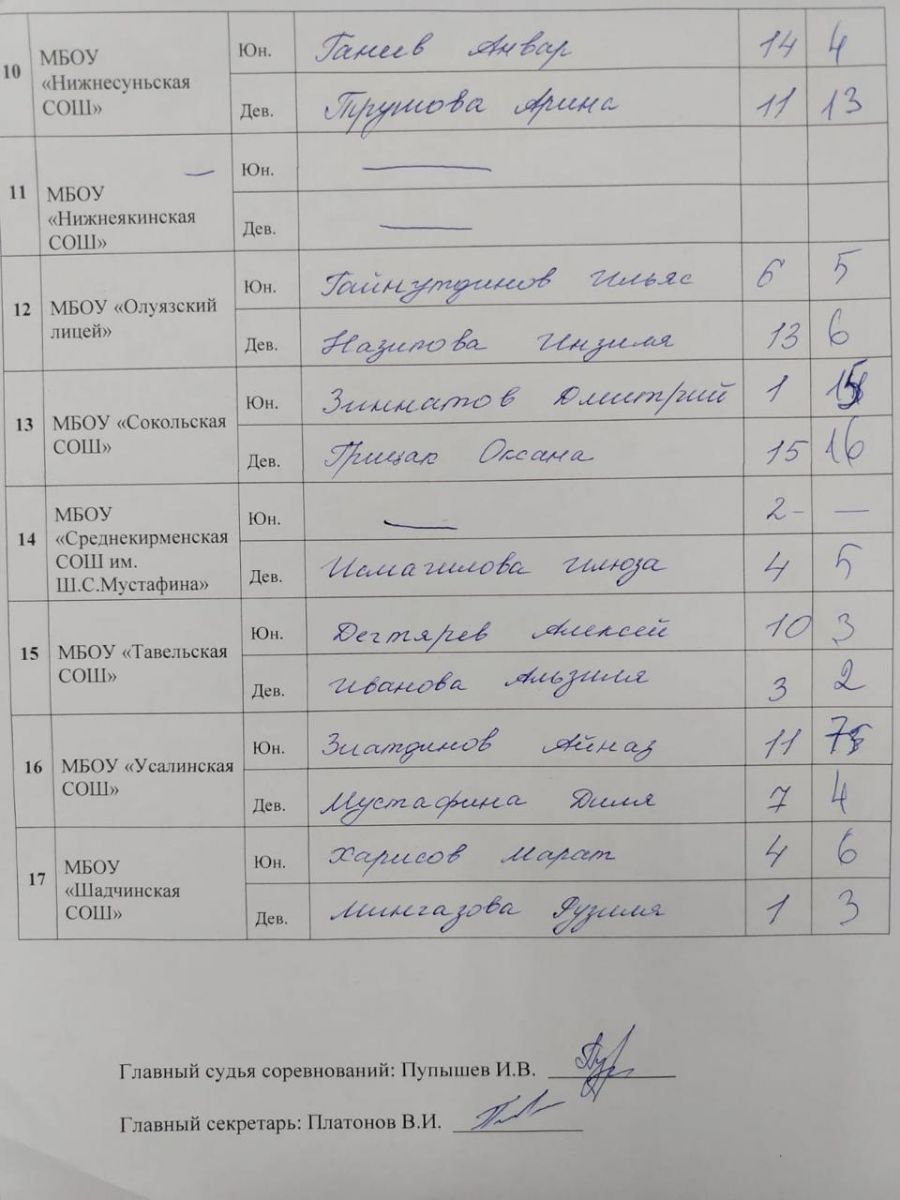 10 МБОУ «Нижнесуньская СОШ» Юн. Ганеев Анвар 14 4
Дев. Трушова Арина 11 13
11 МБОУ «Нижнеякинская СОШ» — Юн. —
Дев. —
12 МБОУ «Олуязский лицей» Юн. Гайнутдинов Ильяс 6 5
Дев. Назипова Инзиля 13 6
13 МБОУ «Сокольская СОШ» Юн. Зиннатов Дмитрий 1
Дев. Грицак Оксана 15 16
14 МБОУ «Среднекирменская СОШ им. Ш.С.Мустафина» Юн. — 2 - —
Дев. Исмагилова Илюза 4 5
15 МБОУ «Тавельская СОШ» Юн. Дегтярев Алексей 10 3
Дев. Иванова Альзиля 3 2
16 МБОУ «Усалинская СОШ» Юн. Зиатдинов Айназ 11
Дев. Мустафина Диля 7 4
17 МБОУ «Шадчинская СОШ» Юн. Харисов Марат 4 6
Дев. Мингазова Рузиля 1 3
Главный судья соревнований: Пупышев И.В.
Главный секретарь: Платонов В.И.